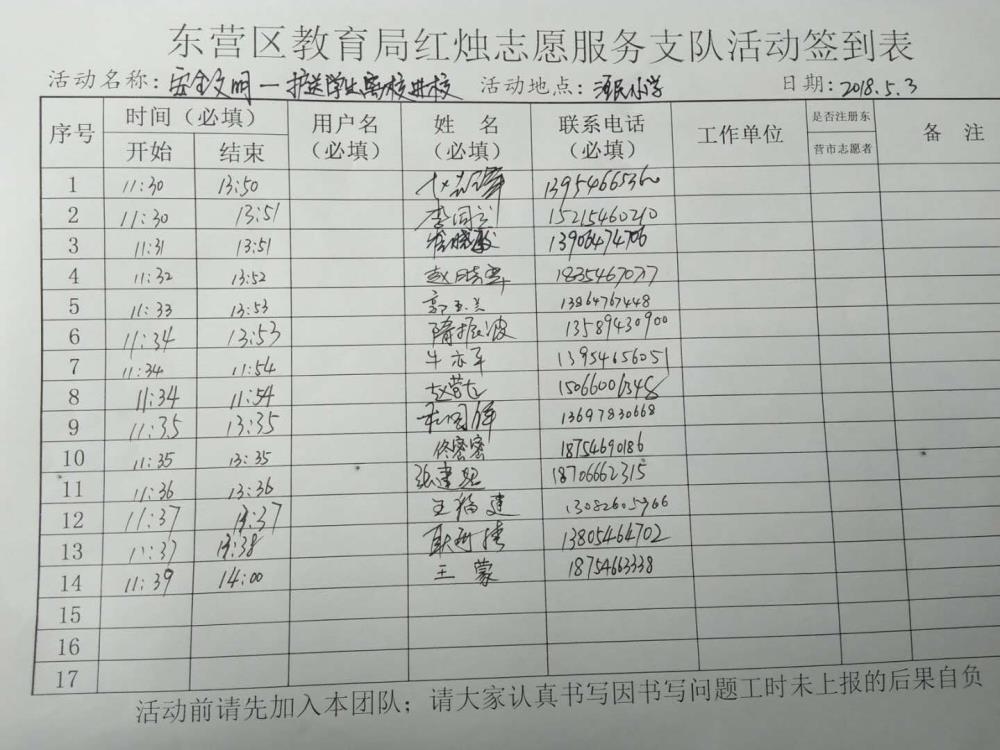 东营区教育局红烛志愿服务支队活动签到表
活动名称：安全文明—护送学生离校进校 活动地点：小学 日期：2018.5.3
序号 时间（必填） 用户名（必填） 姓 名（必填） 联系电话（必填） 工作单位 是否注册东营市志愿者 备 注
开始 结束
1 11:30 13:50 13954665360
2 11:30 13:51 李 15215460210
3 11:31 13:51 13906474706
4 11:32 13:52 赵 18354670777
5 11:33 13:53 郭玉兰 13864767448
6 11:34 13:53 隋振波 13589430900
7 11:34 11:54 牛亦军 13954656051
8 11:34 11:54 赵营 15066006348
9 11:35 13:35 13697830668
10 11:35 13:35 佟密密 18754690186
11 11:36 13:36 张建 18706662315
12 11:37 13:37 王福建 13082605966
13 11:37 13:38 13805464702
14 11:39 14:00 王蒙 18754663338
15
16
17
活动前请先加入本团队；请大家认真书写因书写问题工时未上报的后果自负